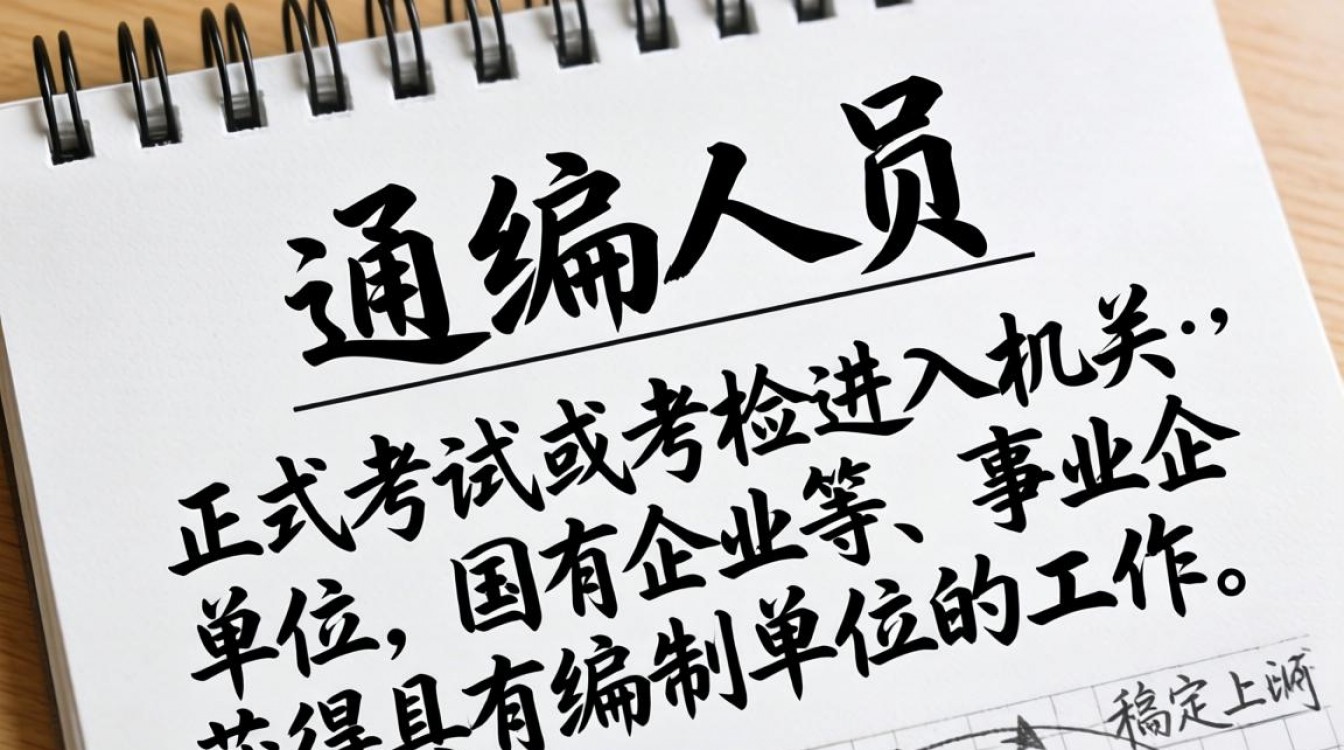 通编人员
正式考试或考检进入机关.,
单位，国有企业等、事业企
获得具有编制单位的工作。
稿定上